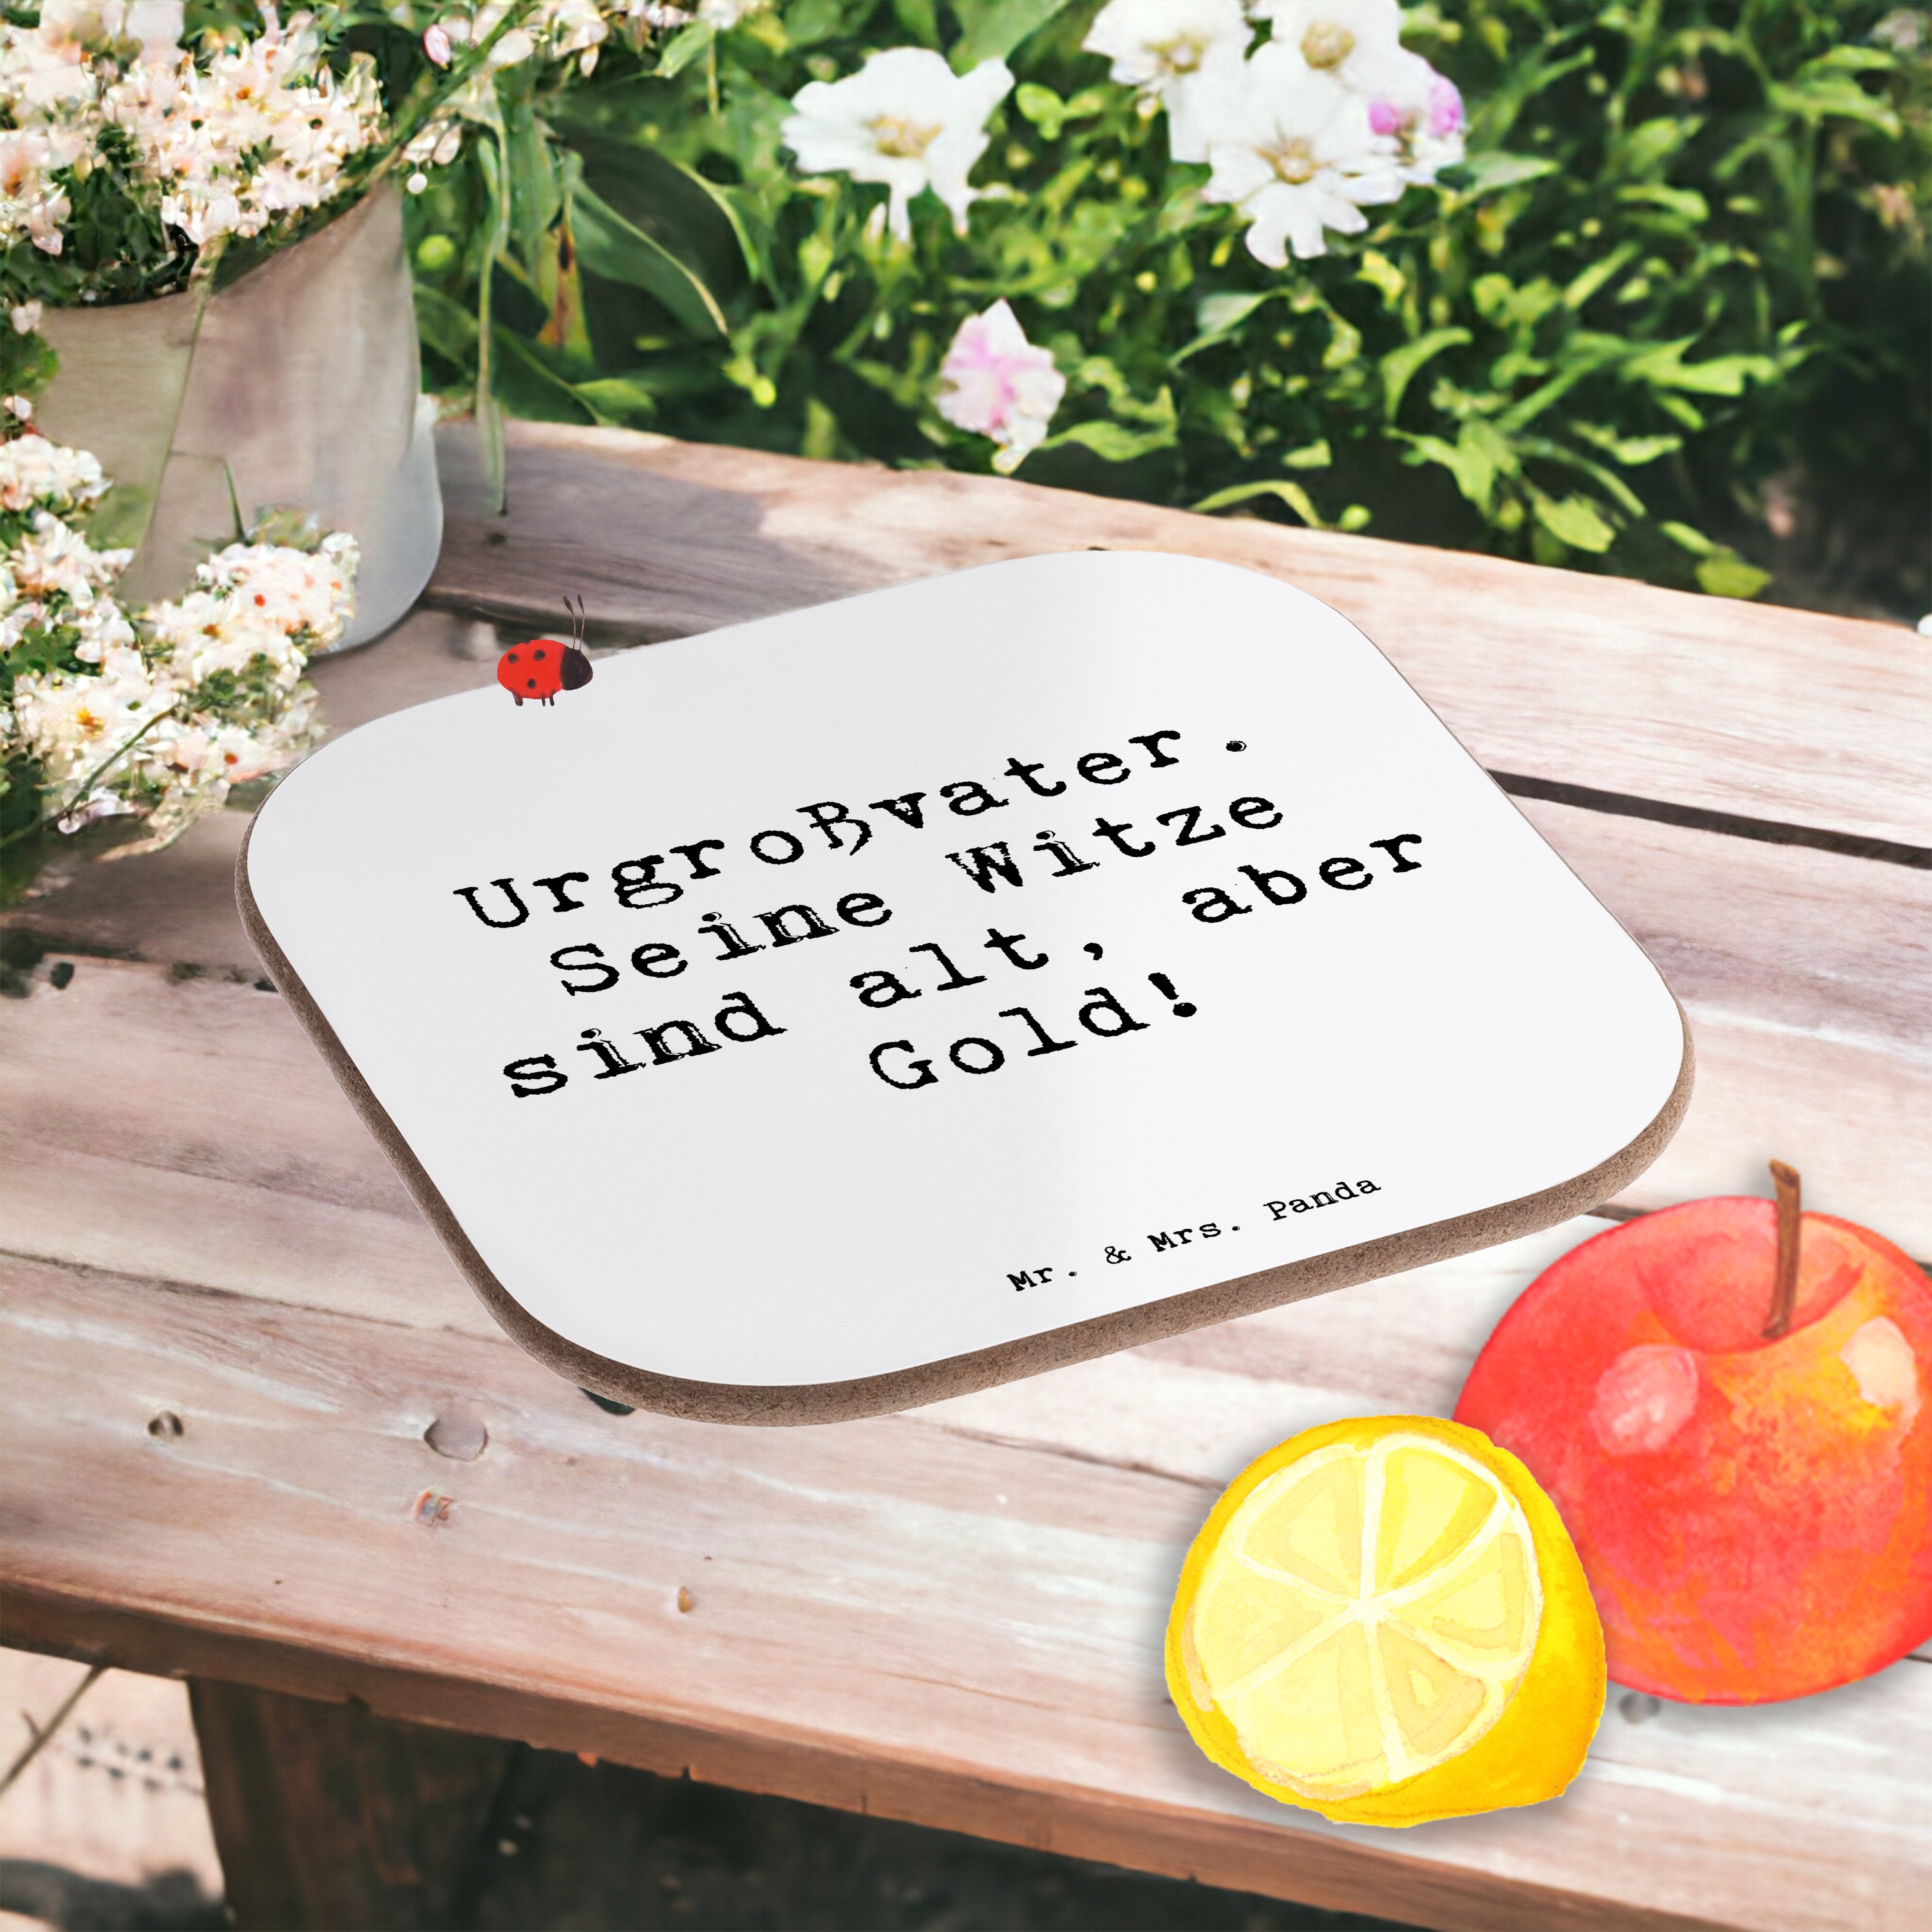 Urgroßvater.
Seine Witze
sind alt, aber
Gold!
Mr. & Mrs. Panda